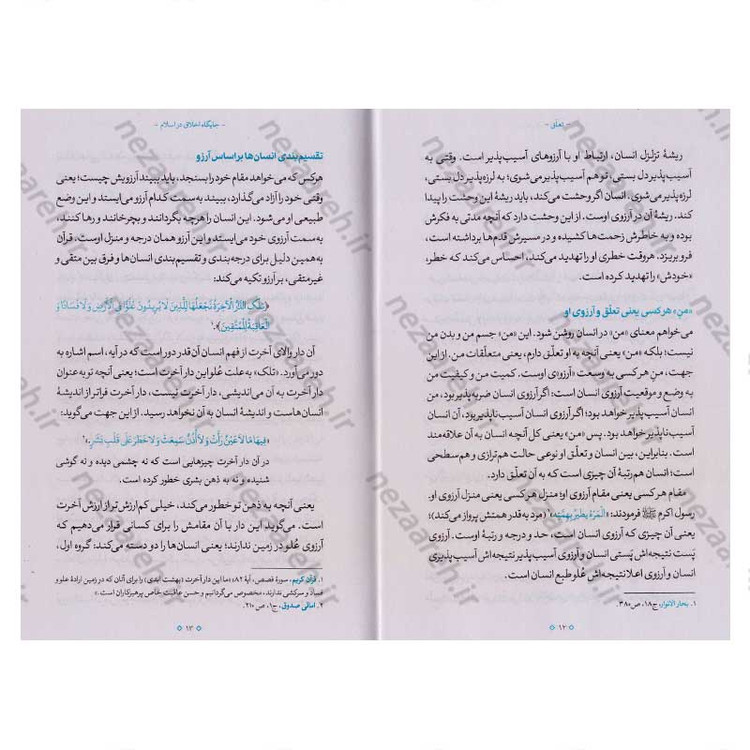 - تعلّق -
ریشهٔ تزلزل انسان، ارتباط او با آرزوهای آسیب‌پذیر است. وقتی به
آسیب‌پذیر دل بستی، تو هم آسیب‌پذیر می‌شوی؛ به لرزه‌پذیر دل بستی،
لرزه‌پذیر می‌شوی. انسان اگر وحشت می‌کند، باید ریشهٔ این وحشت را پیدا
کند. ریشهٔ آن در آرزوی اوست. از این وحشت دارد که آنچه مدتی به فکرش
بوده و به خاطرش زحمت‌ها کشیده و در مسیرش قدم‌ها برداشته است،
فرو بریزد. هروقت خطری او را تهدید می‌کند، احساس می‌کند که خطر،
«خودش» را تهدید کرده است.
«من» هر کسی یعنی تعلّق و آرزوی او
می‌خواهم معنای «من» در انسان روشن شود. این «من» جسم من و بدن من
نیست؛ بلکه «من» یعنی آنچه به او تعلّق دارم، یعنی متعلّقات من. از این
جهت، منِ هر کسی به وسعت «آرزو»ی اوست. کمیت من و کیفیت من
به وضع و موقعیت آرزوی انسان است؛ اگر آرزوی انسان ضربه‌پذیر بود، من
انسان آسیب‌پذیر خواهد بود؛ اگر آرزوی انسان آسیب‌ناپذیر بود، آن انسان
آسیب‌ناپذیر خواهد بود. پس «من» یعنی کل آنچه انسان به آن علاقه‌مند
است. بنابراین، بین انسان و تعلّق او نوعی حالت هم‌ترازی و هم‌سطحی
است؛ انسان هم‌رتبهٔ آن چیزی است که به آن تعلّق دارد.
مقام هر کسی یعنی مقام آرزوی او؛ منزل هر کسی یعنی منزل آرزوی او.
رسول اکرم ﷺ فرمودند: «اَلْمَرْءُ یَطیرُ بِهِمَّتِهِ»¹ (مرد به قدر همتش پرواز می‌کند)؛
یعنی آن چیزی که آرزوی انسان است، حد و درجه و رتبهٔ اوست. آرزوی
پَست نتیجه‌اش پَستی انسان و آرزوی آسیب‌پذیر نتیجه‌اش آسیب‌پذیری
انسان و آرزوی اعلا نتیجه‌اش عُلو طبع انسان است.
۱. بحار الانوار، ج۱۸، ص۳۸۰.
۱۲
- جایگاه اخلاق در اسلام -
تقسیم‌بندی انسان‌ها بر اساس آرزو
هر کس که می‌خواهد مقام خود را بسنجد، باید ببیند آرزویش چیست؛ یعنی
وقتی خود را آزاد می‌گذارد، ببیند به سمت کدام آرزو می‌ایستد و این وضع
طبیعی او می‌شود. این انسان را هرچه بگردانند و بچرخانند و رها کنند،
به سمت آرزوی خود می‌ایستد و این آرزو همان درجه و منزل اوست. قرآن
به همین دلیل برای درجه‌بندی و تقسیم‌بندی انسان‌ها و فرق بین متقی و
غیرمتقی، بر آرزو تکیه می‌کند:
﴿تِلْکَ الدَّارُ الْآخِرَةُ نَجْعَلُهَا لِلَّذِینَ لَا یُرِیدُونَ عُلُوًّا فِی الْأَرْضِ وَ لَا فَسَادًا وَ
الْعَاقِبَةُ لِلْمُتَّقِینَ﴾.¹
آن دار والای آخرت از فهم انسان آن قدر دور است که در آیه، اسم اشاره به
دور می‌آورد. «تلک» به علت عُلو این دار آخرت است؛ یعنی آنچه تو به عنوان
دار آخرت به آن می‌اندیشی، دار آخرت نیست. دار آخرت فراتر از آرزوی
انسان‌هاست و اندیشهٔ انسان به آن نخواهد رسید. از این جهت می‌گوید:
«فِیهَا مَا لَا عَیْنٌ رَأَتْ وَ لَا أُذُنٌ سَمِعَتْ وَ لَا خَطَرَ عَلَی قَلْبِ بَشَرٍ.»²
در آن دار آخرت چیزهایی است که نه چشمی دیده و نه گوشی
شنیده و نه به ذهن بشری خطور کرده است.
یعنی آنچه به ذهن تو خطور می‌کند، خیلی کم‌ارزش‌تر از ارزش آخرت
است. می‌گوید این دار با آن مقامش را برای کسانی قرار می‌دهیم که
آرزوی عُلو در زمین ندارند؛ یعنی انسان‌ها را دو دسته می‌کند: گروه اول،
۱. قرآن کریم، سورهٔ قصص، آیهٔ ۸۳؛ «ما این دار آخرت (بهشت ابدی) را برای آنان که در زمین ارادهٔ علو و
فساد و سرکشی ندارند، مخصوص می‌گردانیم و حسن عاقبت خاص پرهیزکاران است.»
۲. امالی صدوق، ج۱، ص۲۱۰.
۱۳
nezaareh.ir